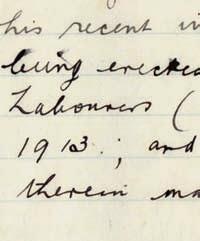 his recent in
being erected
Labourers (
1913; and
therein ma